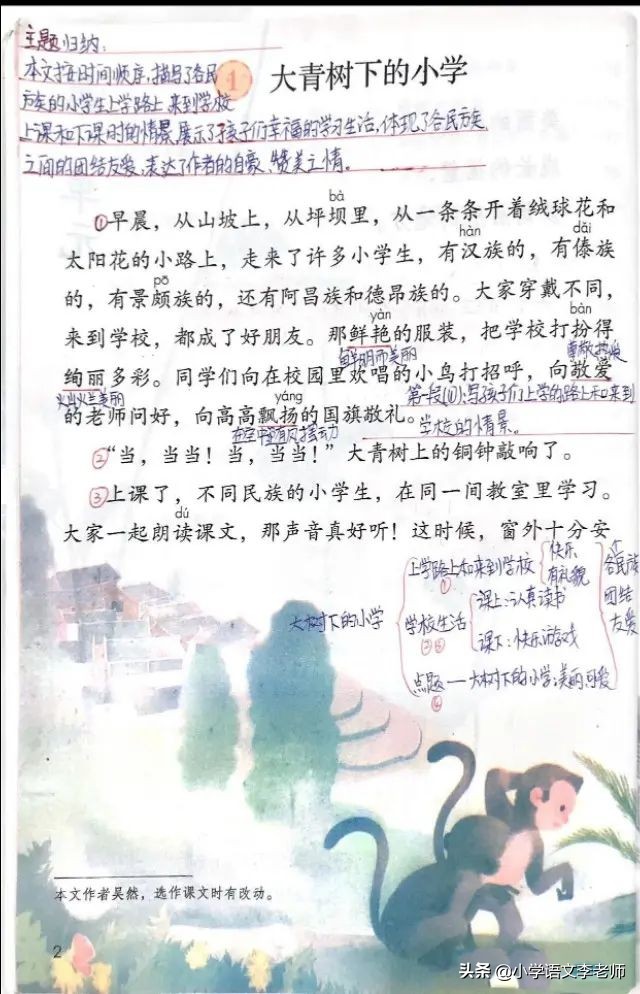 主题归纳：
本文按时间顺序，描写了各民
族的小学生上学路上、来到学校
上课和下课时的情景，展示了孩子们幸福的学习生活，体现了各民族
之间的团结友爱，表达了作者的自豪、赞美之情。
1 大青树下的小学
bà
①早晨，从山坡上，从坪坝里，从一条条开着绒球花和
hàn dǎi
太阳花的小路上，走来了许多小学生，有汉族的，有傣族
pō
的，有景颇族的，还有阿昌族和德昂族的。大家穿戴不同，
yàn bàn
来到学校，都成了好朋友。那鲜艳的服装，把学校打扮得
鲜明而美丽 尊敬热爱
绚丽多彩。同学们向在校园里欢唱的小鸟打招呼，向敬爱
灿烂美丽 yáng 第一段(①)：写孩子们上学的路上和来到
的老师问好，向高高飘扬的国旗敬礼。
在空中随风摆动 学校的情景。
②“当，当当！当，当当！”大青树上的铜钟敲响了。
③上课了，不同民族的小学生，在同一间教室里学习。
dú
大家一起朗读课文，那声音真好听！这时候，窗外十分安
大树下的小学
上学路上和来到学校
①
快乐
有礼貌
学校生活
②③
课上：认真读书
课下：快乐游戏
点题——大树下的小学：美丽可爱
④
各民族
团结
友爱
本文作者吴然，选作课文时有改动。
2
头条 @小学语文李老师